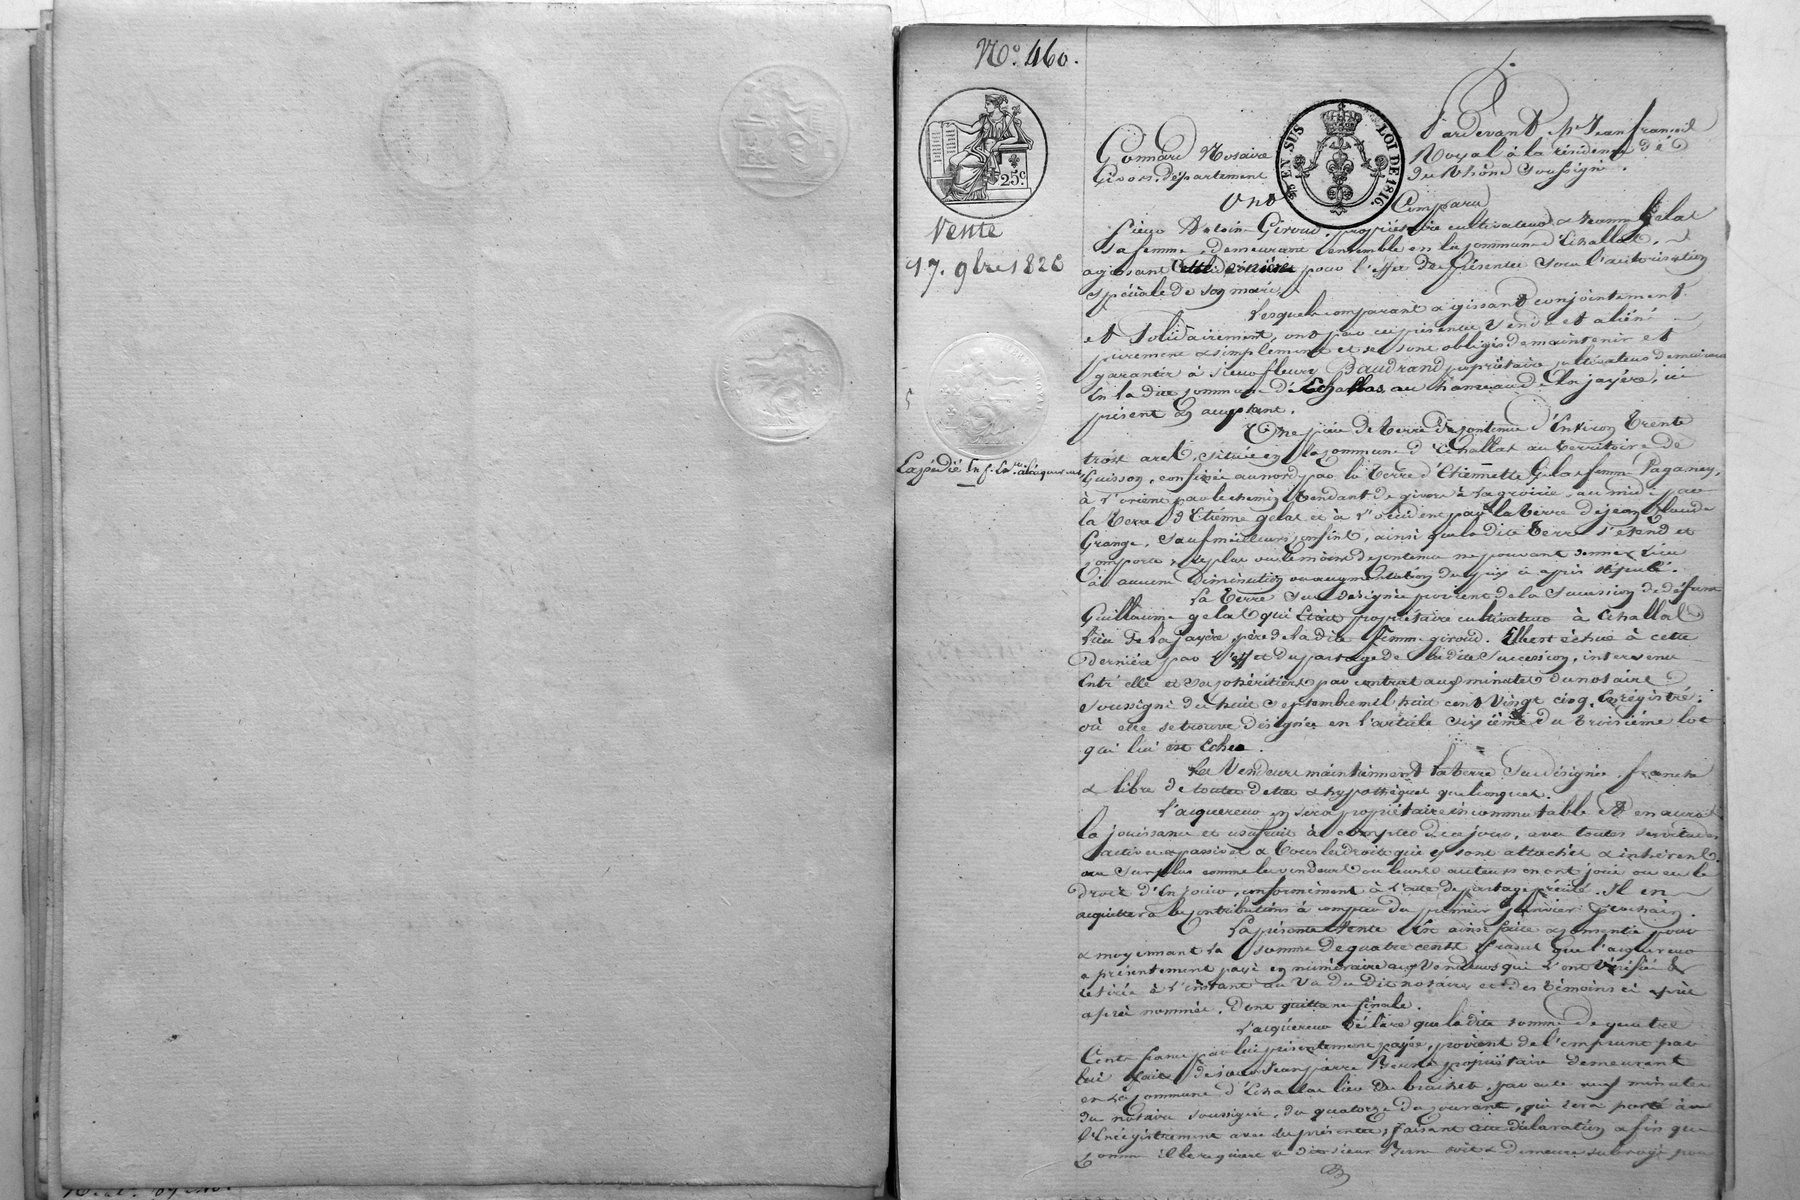 N.º 460.
25c
EN SUS
LOI DE 1816.
Vente
17. 9bre 1826
Pardevant Me Jean françois
Gonnard Notaire Royal à la résidence de
Givors, département du Rhône soussigné.
Ont Comparu
Antoine Giroud, propriétaire cultivateur & Gelas
sa femme, demeurant ensemble en la commune d'Echallas,
agissant cette dernière pour l'effet des présentes sous l'autorisation
spéciale de son mari,
Lesquels comparants agissant conjointement
et solidairement, ont par ces présentes vendu et aliéné
purement & simplement et se sont obligés de maintenir et
garantir à sieur fleury Baudrand propriétaire cultivateur demeurant
en la dite commune d'Echallas au hameau de ici
présent & acceptant.
Une pièce de terre de contenue d'Environ trente
trois ares, située en la commune d'Echallas au territoire de
Guisson, confinée au nord par la terre d'Etiennette Gelas femme Paganey,
à l'orient par le chemin tendant de givors à au midi par
la terre d'Etienne gelas et à l'occident par la terre de jean Claude
Grange, sauf meilleurs confins, ainsi que la dite terre s'étend et
comporte le plus ou le moins de contenue ne pouvant donner lieu
à aucune diminution ou augmentation du prix ci après stipulé.
La terre sus désignée provient de la succession de défunt
Guillaume gelas qui était propriétaire cultivateur à Echallas
lieu de père de la dite femme giroud. Elle est échue à cette
dernière par l'effet du partage de la dite succession, intervenu
Entr'elle et ses cohéritiers par contrat aux minutes du notaire
soussigné du huit septembre mil huit cent vingt cinq, Enregistré;
où elle se trouve désignée en l'article sixième du troisième lot
qui lui est échu.
Les Vendeurs maintiennent la terre sus désignée, franche
& libre de toutes dettes & hypothèques quelconques.
L'acquéreur en sera propriétaire incommutable et en aura
la jouissance et usufruit à compter de ce jour, avec toutes servitudes
actives & passives & tous les droits qui y sont attachés & inhérents,
au surplus comme les vendeurs ou leurs auteurs en ont joui ou eu le
droit d'En jouir, conformément à l'acte de partage précité. Il en
acquittera les contributions à compter du premier Janvier prochain.
La présente Vente Est ainsi faite & consentie pour
& moyennant la somme de quatre cents francs que l'acquéreur
a présentement payé en numéraire aux Vendeurs qui l'ont vérifié &
retirée à l'instant au vu du dit notaire et des témoins ci après
après nommés. Dont quittance finale.
L'acquéreur déclare que la dite somme de quatre
Cents francs par lui présentement payée, provient de l'emprunt par
lui fait de sieur Jean pierre propriétaire demeurant
en la commune d'Echallas lieu de par acte aux minutes
du notaire soussigné, du quatorze du courant, qui sera porté à
l'Enregistrement avec les présentes, faisant cette déclaration afin que
comme il le requiert le dit sieur soit & demeure subrogé par